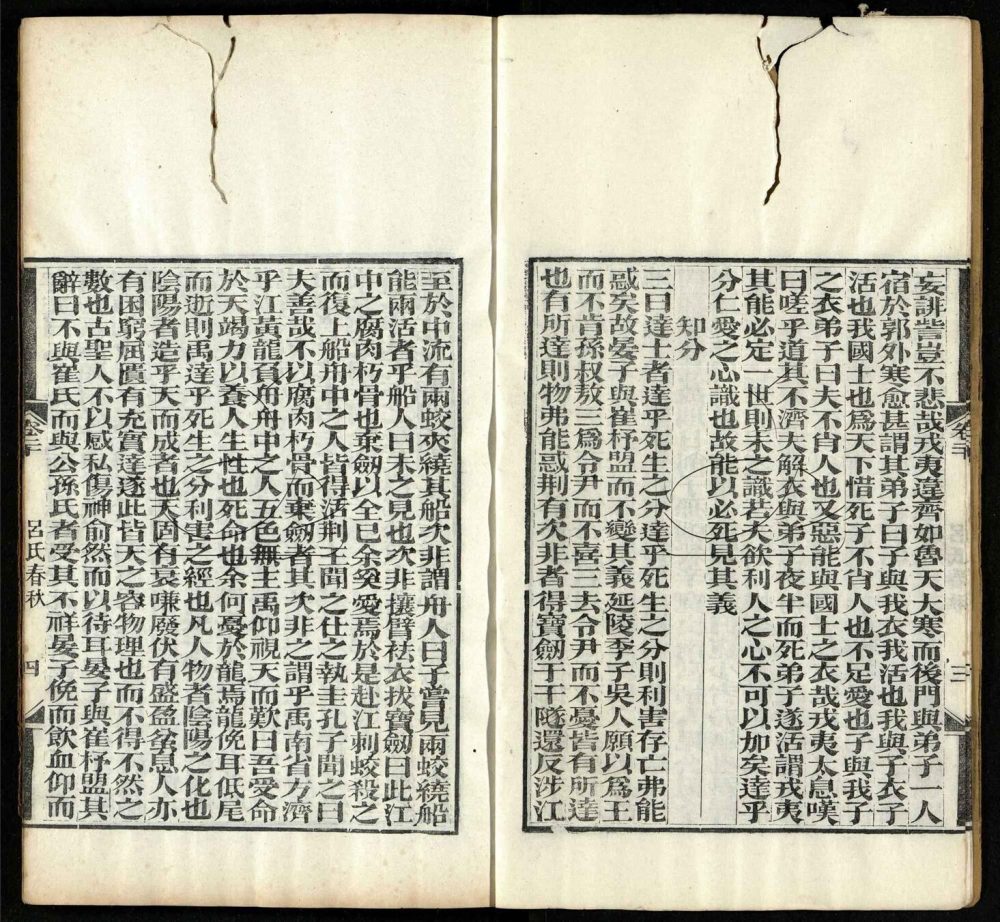 卷二十
三
妄誹訾豈不悲哉戎夷違齊如魯天大寒而後門與弟子一人
宿於郭外寒愈甚謂其弟子曰子與我衣我活也我與子衣子
活也我國士也爲天下惜死子不肖人也不足愛也子與我子
之衣弟子曰夫不肖人也又惡能與國士之衣哉戎夷太息嘆
曰嗟乎道其不濟夫解衣與弟子夜半而死弟子遂活謂戎夷
其能必定一世則未之識若夫欲利人之心不可以加矣達乎
分仁愛之心識也故能以必死見其義
知分
三曰達士者達乎死生之分達乎死生之分則利害存亡弗能
惑矣故晏子與崔杼盟而不變其義延陵季子吳人願以爲王
而不肯孫叔敖三爲令尹而不喜三去令尹而不憂皆有所達
也有所達則物弗能惑荆有次非者得寶劒于干隧還反涉江
至於中流有兩蛟夾繞其船次非謂舟人曰子嘗見兩蛟繞船
能兩活者乎船人曰未之見也次非攘臂袪衣拔寶劒曰此江
中之腐肉朽骨也棄劒以全己余奚愛焉於是赴江刺蛟殺之
而復上船舟中之人皆得活荆王聞之仕之執圭孔子聞之曰
夫善哉不以腐肉朽骨而棄劒者其次非之謂乎禹南省方濟
乎江黃龍負舟舟中之人五色無主禹仰視天而歎曰吾受命
於天竭力以養人生性也死命也余何憂於龍焉龍俛耳低尾
而逝則禹達乎死生之分利害之經也凡人物者陰陽之化也
陰陽者造乎天而成者也天固有衰嗛廢伏有盛盈坌息人亦
有困窮屈匱有充實達遂此皆天之容物理也而不得不然之
數也古聖人不以感私傷神俞然而以待耳晏子與崔杼盟其
辭曰不與崔氏而與公孫氏者受其不祥晏子俛而飲血仰而
卷二十
呂氏春秋
四